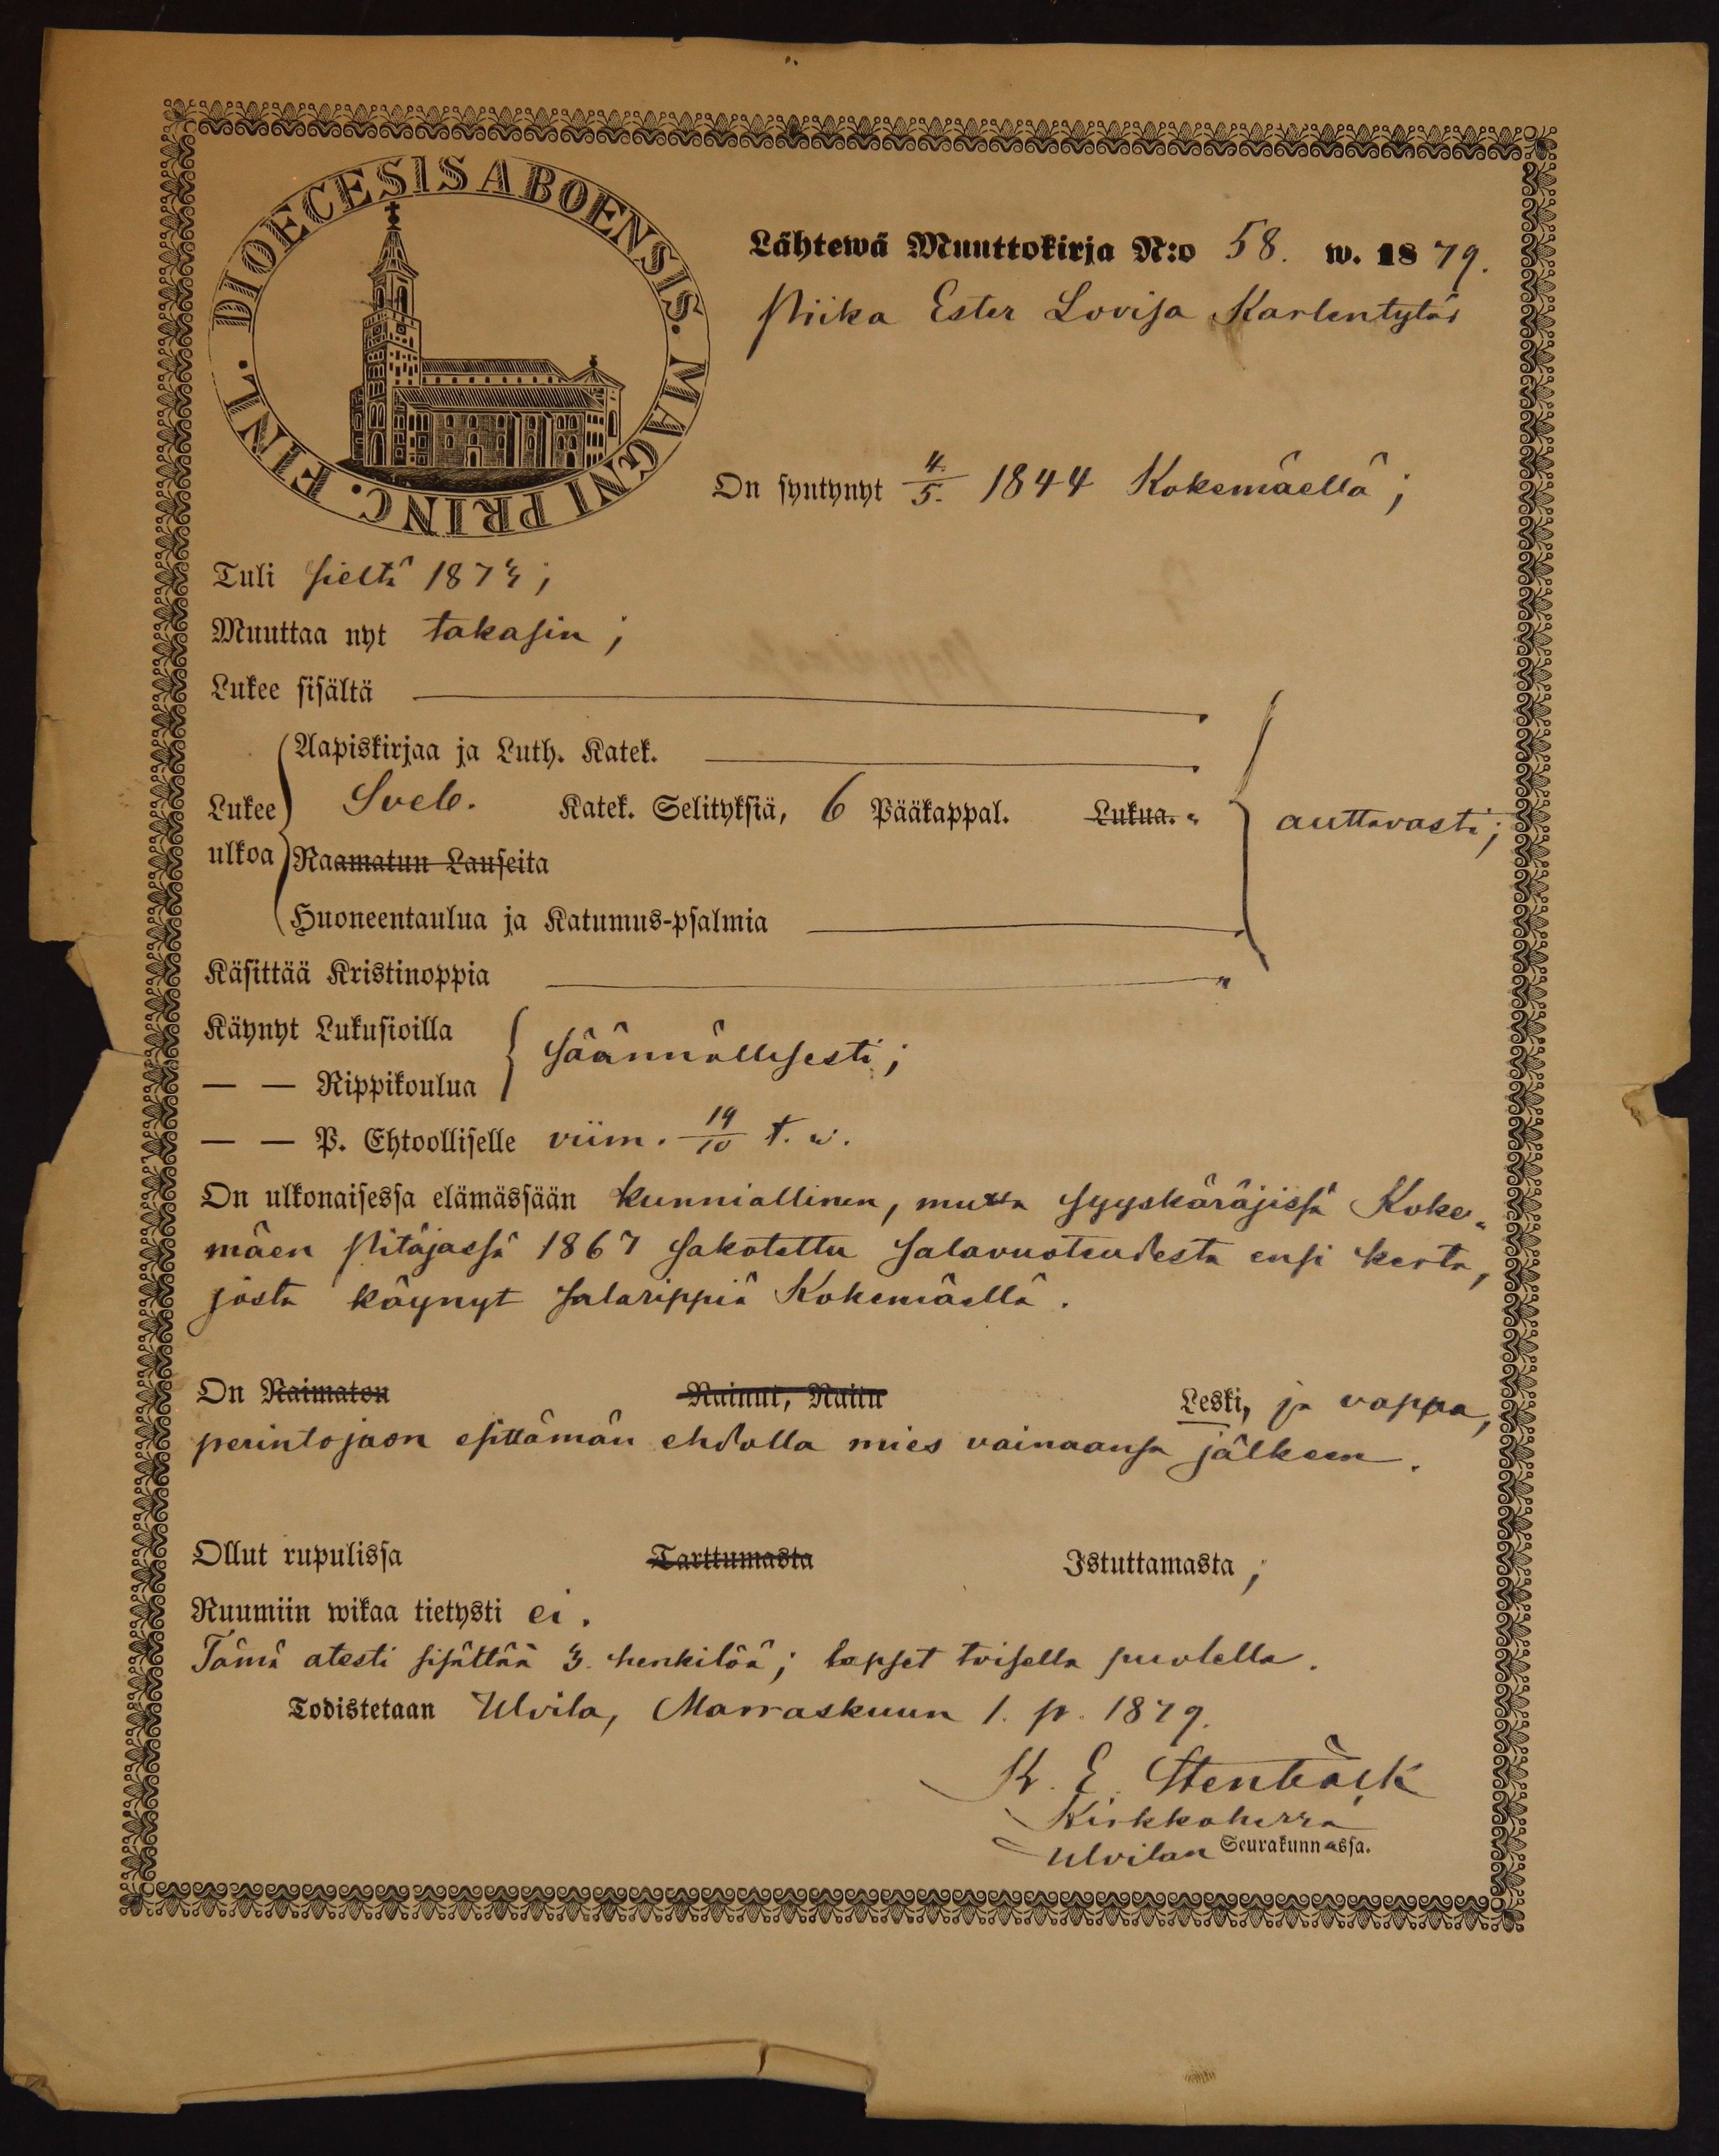 DIOECESIS ABOENSIS. MAGNI PRINC. FINL.
Lähtewä Muuttokirja N:o 58. w. 1879.
Piika Ester Lovisa Karlentytär
On syntynyt 4./5. 1844 Kokemäellä;
Tuli sieltä 1873;
Muuttaa nyt takasin;
Lukee sisältä
Aapiskirjaa ja Luth. Katek.
Lukee ulkoa Sveb. Katek. Selityksiä, 6 Pääkappal. Lukua. auttavasti;
Raamatun Lauseita
Huoneentaulua ja Katumus-psalmia
Käsittää Kristinoppia
Käynyt Lukusioilla
säännöllisesti;
— — Rippikoulua
— — P. Ehtoolliselle viim. 19/10 t. v.
On ulkonaisessa elämässään kunniallinen, mutta syyskäräjissä Koke-
mäen pitäjässä 1867 sakotettu salavuoteudesta ensi kerta,
josta käynyt salarippiä Kokemäellä.
On Raimaton Nainut, Naitu Leski, ja vappa,
perintojaon esittämän ehdolla mies vainaansa jälkeen.
Ollut rupulissa Tarttumasta Istuttamasta;
Ruumiin wikaa tietysti ei.
Tämä atesti sisältää 3. henkilöä; lapset toisella puolella.
Todistetaan Ulvila, Marraskuun 1. p. 1879.
K. E. Stenbäck
Kirkkoherra
Ulvilan Seurakunnassa.